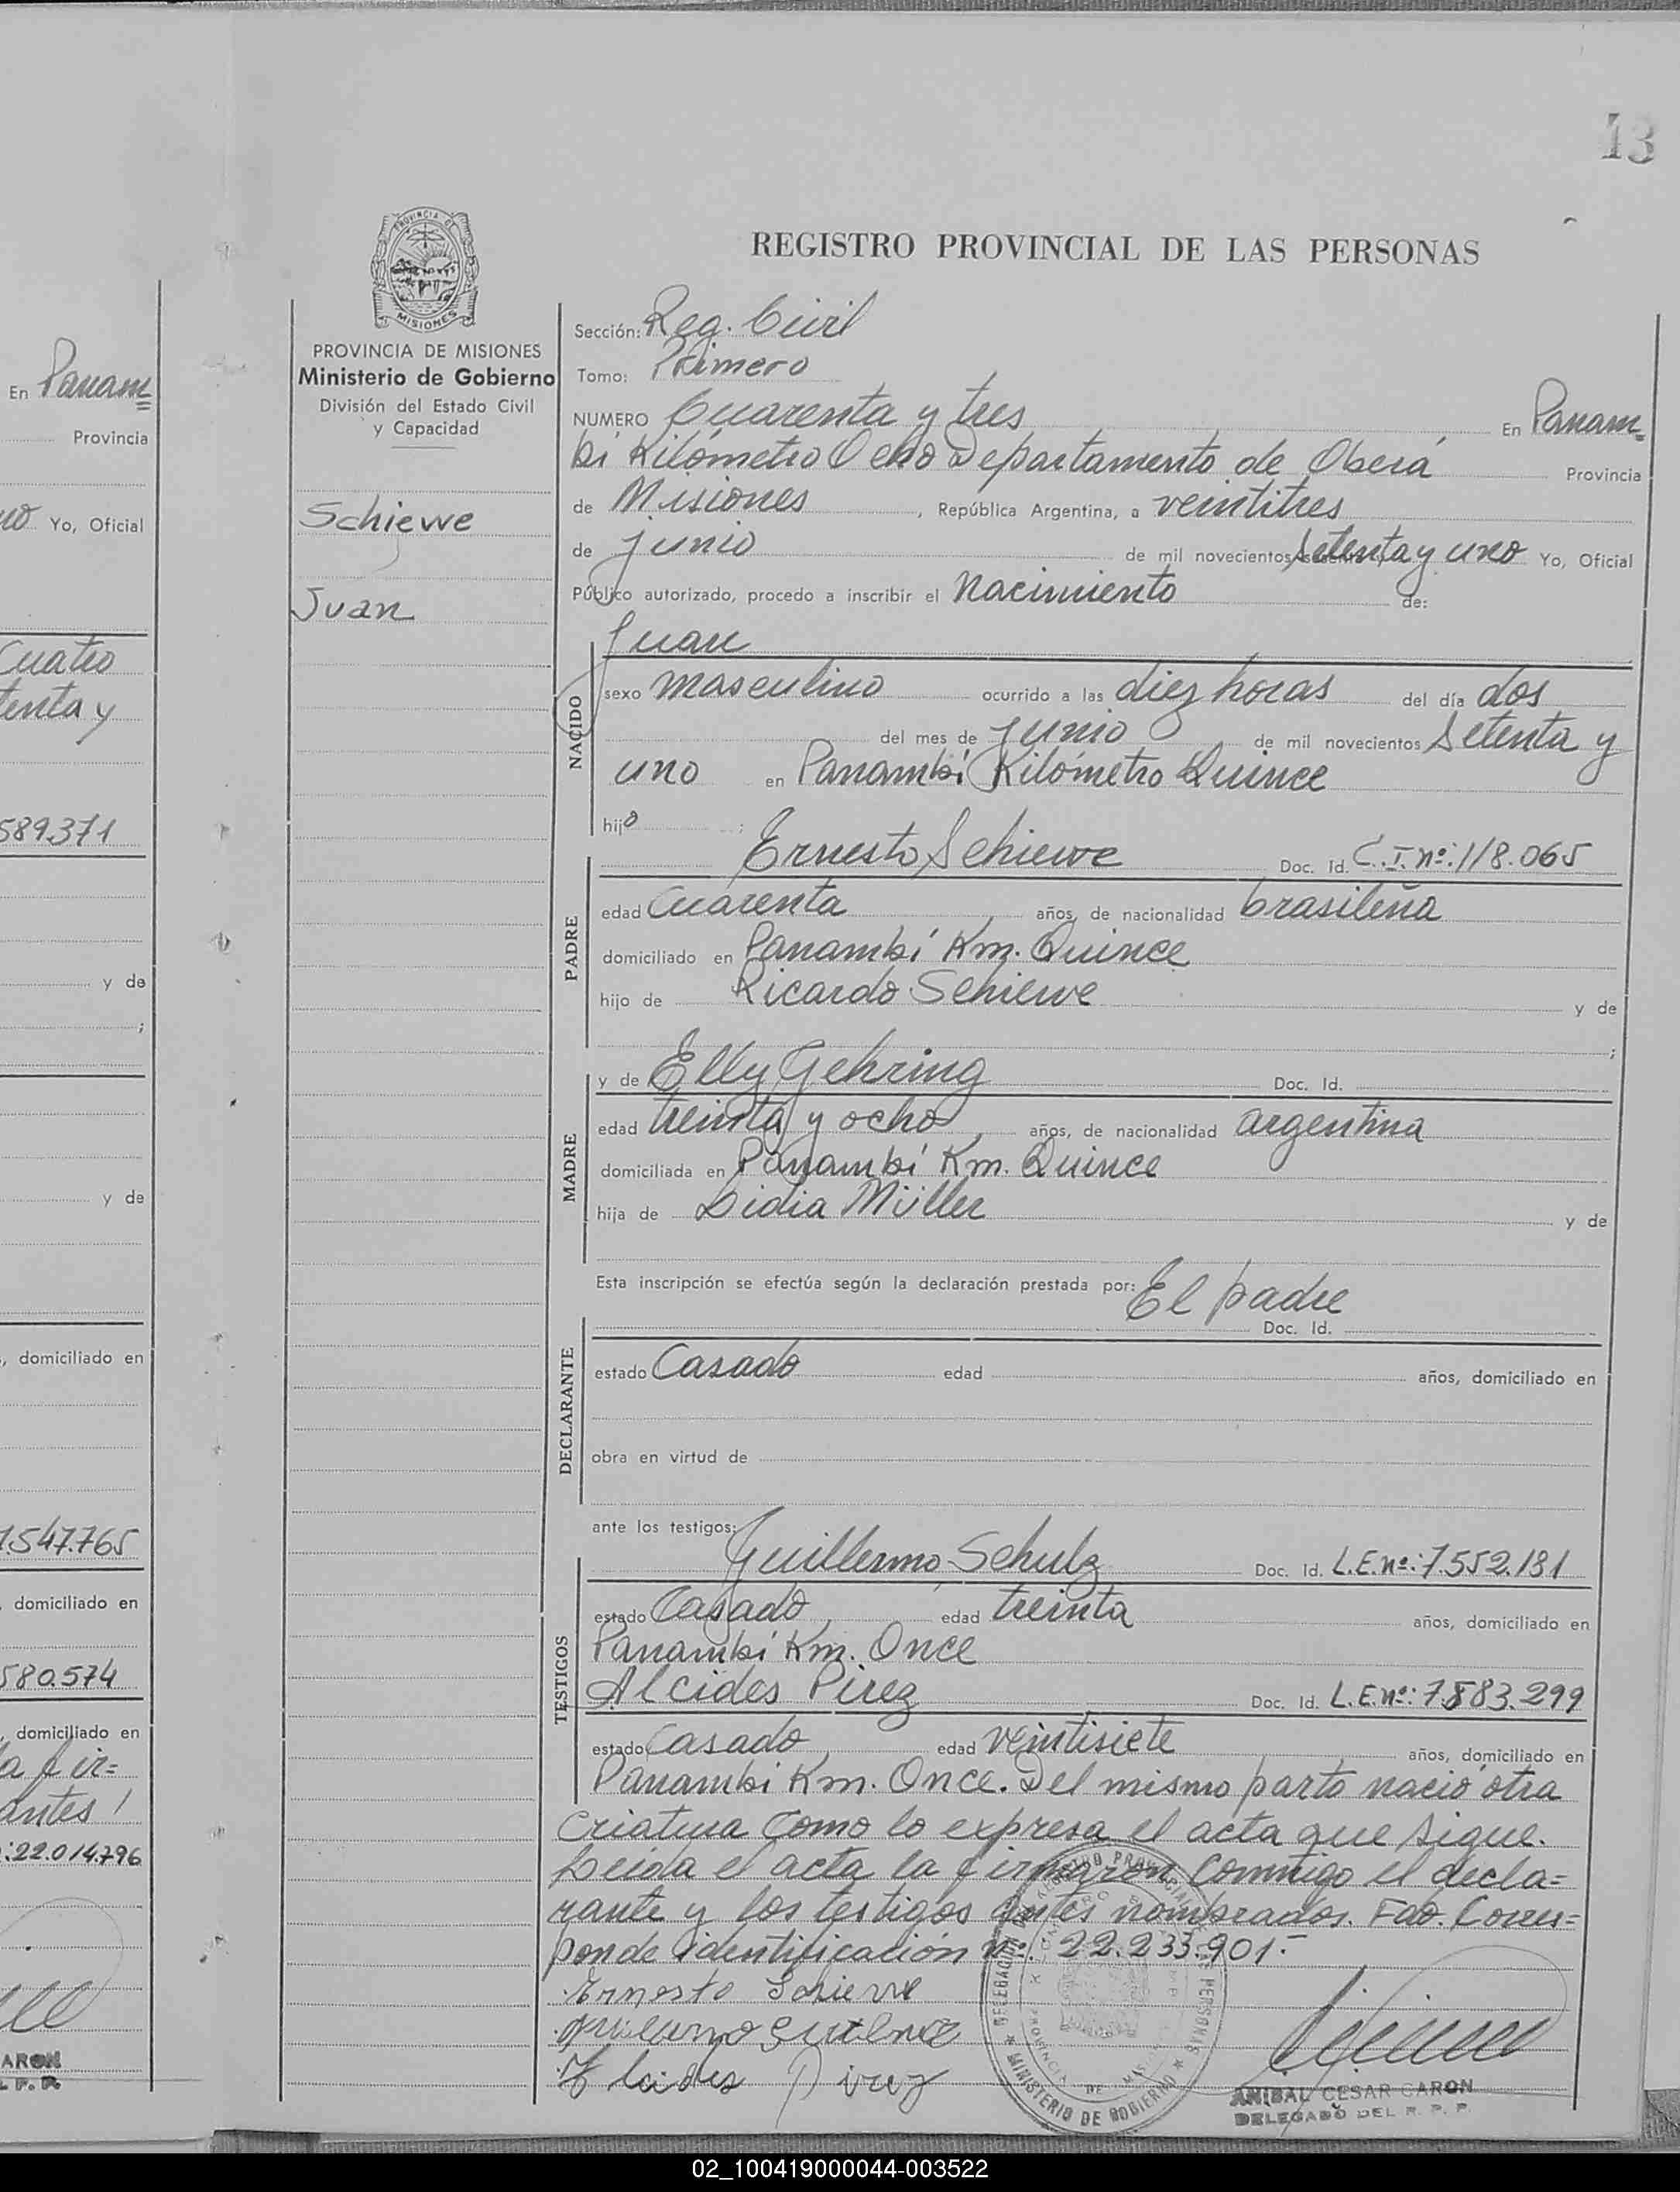 13
REGISTRO PROVINCIAL DE LAS PERSONAS
PROVINCIA DE
MISIONES
PROVINCIA DE MISIONES
Ministerio de Gobierno
División del Estado Civil
y Capacidad
Schiewe
Juan
Sección: Reg. Civil
Tomo: Primero
NUMERO Cuarenta y tres En Panam=
bí Kilómetro Ocho Departamento de Oberá Provincia
de Misiones, República Argentina, a veintitres
de junio de mil novecientos setenta y uno Yo, Oficial
Público autorizado, procedo a inscribir el nacimiento de:
Juan
NACIDO
sexo masculino ocurrido a las diez horas del día dos
del mes de junio de mil novecientos setenta y
uno en Panambí Kilómetro Quince
hijo ;
PADRE
Ernesto Schiewe Doc. Id. C.I.nº:118.065
edad cuarenta años, de nacionalidad brasileña
domiciliado en Panambí Km. Quince
hijo de Ricardo Schiewe y de
;
MADRE
y de Elly Gehring Doc. Id.
edad treinta y ocho años, de nacionalidad argentina
domiciliada en Panambí Km. Quince
hija de Lidia Müller y de
Esta inscripción se efectúa según la declaración prestada por: El padre
DECLARANTE
Doc. Id.
estado Casado edad años, domiciliado en
obra en virtud de
ante los testigos:
TESTIGOS
Guillermo Schulz Doc. Id. L.E.nº:7.552.181
estado Casado edad treinta años, domiciliado en
Panambí Km. Once
Alcides Pirez Doc. Id. L.E.nº:7.883.299
estado casado edad veintisiete años, domiciliado en
Panambí Km. Once. Del mismo parto nació otra
criatura como lo expresa el acta que sigue.
Leida el acta la firmaron conmigo el decla=
rante y los testigos antes nombrados. Fdo. Corres=
ponde identificación nº: 22.233.901.-
Ernesto Schiewe
Alcides Pirez
MINISTERIO DE GOBIERNO
ANIBAL CESAR CARON
DELEGADO DEL R. P. P.
En Panam=
Provincia
Yo, Oficial
Cuatro
tenta y
589.371
y de
;
y de
, domiciliado en
1.547.765
, domiciliado en
580.574
, domiciliado en
la fir=
antes!
:22.014.796
ARON
L P. P.
02_100419000044-003522